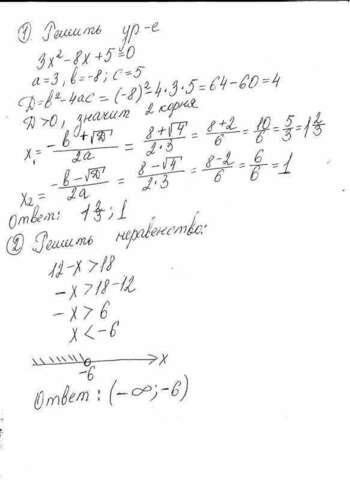 ① Решить ур-е
3x² - 8x + 5 = 0
a = 3, b = -8; c = 5
D = b² - 4ac = (-8)² - 4·3·5 = 64 - 60 = 4
D > 0, значит 2 корня
x₁ = (-b + √D)/2a = (8 + √4)/2·3 = (8 + 2)/6 = 10/6 = 5/3 = 1 2/3
x₂ = (-b - √D)/2a = (8 - √4)/2·3 = (8 - 2)/6 = 6/6 = 1
Ответ: 1 2/3; 1
② Решить неравенство:
12 - x > 18
-x > 18 - 12
-x > 6
x < -6
-6 x
Ответ: (-∞; -6)